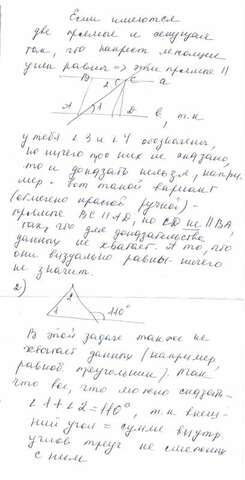 Если имеются
две прямые и секущая
так, что накрест лежащие
углы равны => эти прямые ||
B 2 C C a
A 1 D в, т.к
у тебя ∠3 и ∠4 обозначены,
но ничего про них не сказано,
то и доказать нельзя, напри
мер - вот такой вариант
(отмечено красной ручкой) -
прямые BC || AD, но CD не || BA,
так, что для доказательства
данных не хватает. А то, что
они визуально равны - ничего
не значит.
2)
2
1 110°
В этой задаче также не
хватает данных (например,
равноб. треугольник). Так
что все, что можно сказать -
∠1+∠2=110°, т.к внеш-
ний угол = сумме внутр.
углов треуг не смежных
с ним